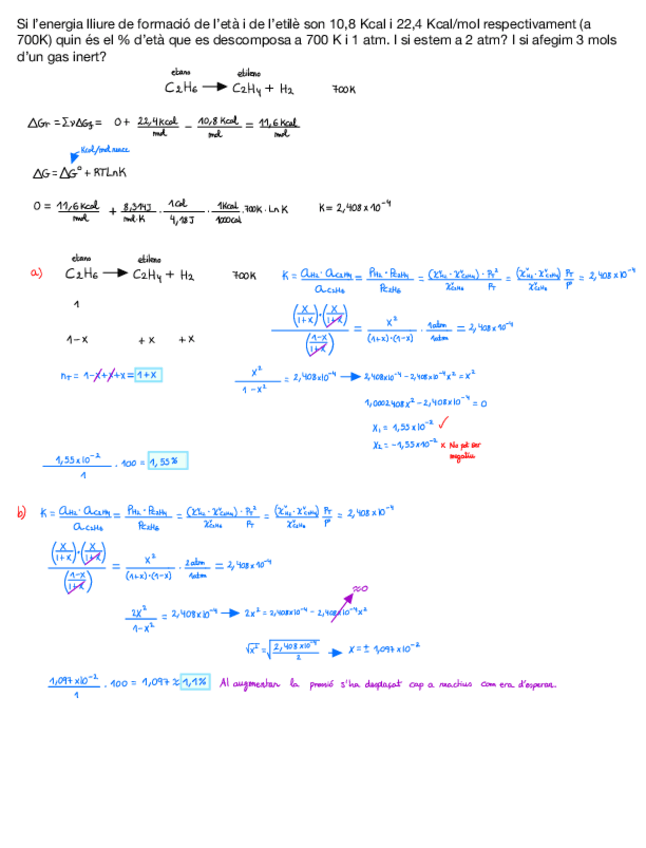 Si l'energia lliure de formació de l'età i de l'etilè son 10,8 Kcal i 22,4 Kcal/mol respectivament (a
700K) quin és el % d'età que es descomposa a 700 K i 1 atm. I si estem a 2 atm? I si afegim 3 mols
d'un gas inert?
etano etileno
C2H6 → C2H4 + H2 700K
ΔGr = ΣνΔGf = 0 + 22,4Kcal/mol − 10,8 Kcal/mol = 11,6 Kcal/mol
Kcal/mol reacc
ΔG = ΔG° + RTLnK
0 = 11,6 Kcal/mol + 8,314J/mol·K · 1cal/4,18J · 1Kcal/1000cal · 700K · Ln K K = 2,408 x 10⁻⁴
etano etileno
a) C2H6 → C2H4 + H2 700K K = aH2 · aC2H4/aC2H6 = PH2 · PC2H4/PC2H6 = (XH2 · XC2H4) · PT²/XC2H6 PT = (XH2 · XC2H4)/XC2H6 PT/P° = 2,408 x 10⁻⁴
1
(x/1+x)·(x/1+x)/(1-x/1+x) = x²/(1+x)·(1-x) · 1atm/1atm = 2,408 x 10⁻⁴
1-x +x +x
nT = 1-x+x+x = 1+x
x²/1-x² = 2,408x10⁻⁴ → 2,408x10⁻⁴ - 2,408x10⁻⁴x² = x²
1,0002408x² - 2,408x10⁻⁴ = 0
X1 = 1,55 x 10⁻² ✓
X2 = -1,55x10⁻² x No pot ser negatiu
1,55x10⁻²/1 · 100 = 1,55%
b) K = aH2 · aC2H4/aC2H6 = PH2 · PC2H4/PC2H6 = (XH2 · XC2H4) · PT²/XC2H6 PT = (XH2 · XC2H4)/XC2H6 PT/P° = 2,408 x 10⁻⁴
(x/1+x)·(x/1+x)/(1-x/1+x) = x²/(1+x)·(1-x) · 2atm/1atm = 2,408 x 10⁻⁴
≈0
2x²/1-x² = 2,408x10⁻⁴ → 2x² = 2,408x10⁻⁴ - 2,408x10⁻⁴x²
√x² = √2,408x10⁻⁴/2 → x = ± 1,097 x10⁻²
1,097x10⁻²/1 · 100 = 1,097 ≈ 1,1% Al augmentar la pressió s'ha desplaçat cap a reactius com era d'esperar.